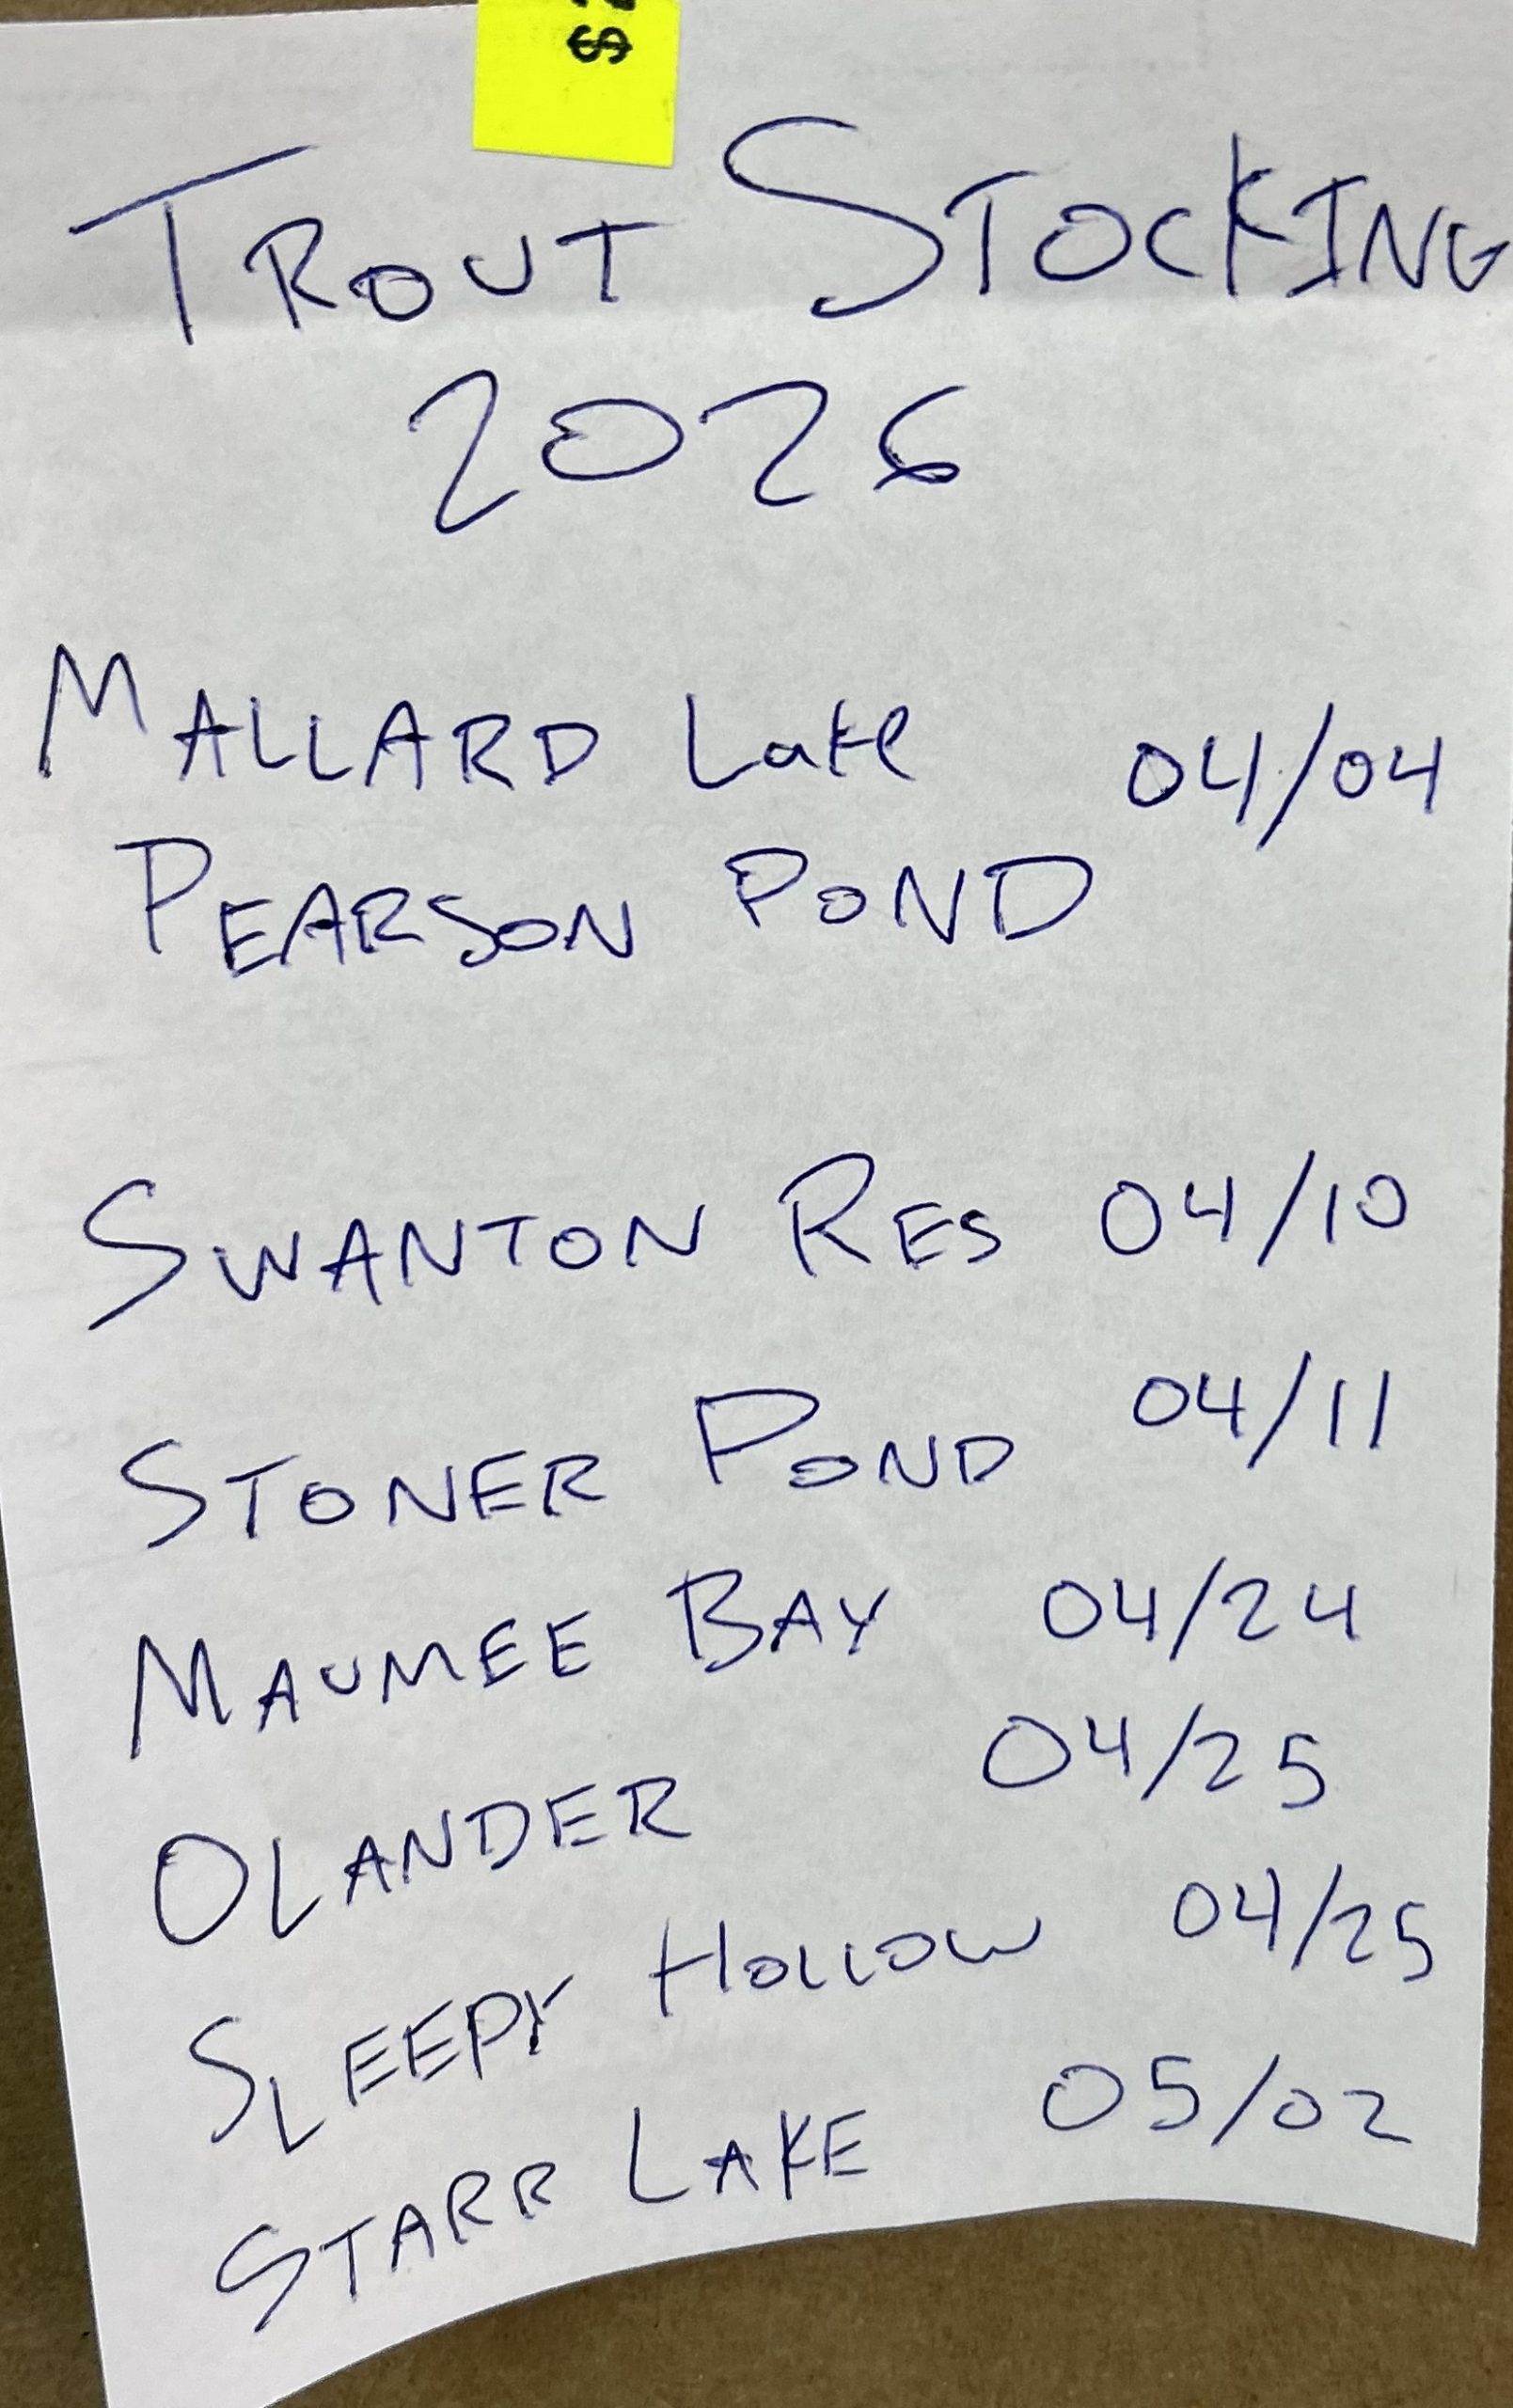 $
TROUT STOCKING
2026
MALLARD Lake 04/04
PEARSON POND
SWANTON RES 04/10
STONER POND 04/11
MAUMEE BAY 04/24
OLANDER 04/25
SLEEPY HOLLOW 04/25
STARR LAKE 05/02